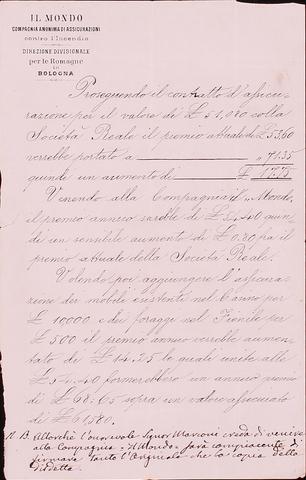 IL MONDO
COMPAGNIA ANONIMA DI ASSICURAZIONI
contro l'Incendio
DIREZIONE DIVISIONALE
per le Romagne
in
BOLOGNA
Proseguendo il contratto d'assicu-
razione per il valore di £ 51,080 colla
Società Reale il premio attuale di £ 53.60
verrebbe portato a " 71.35
quindi un aumento di £ 17.75
Venendo alla Compagnia il "Mondo"
il premio annuo sarebbe di £ 54.40 quin-
di un sensibile aumento di £ 0.80 fra il
premio attuale della Società Reale.
Volendo poi aggiungere l'assicura-
zione dei mobili esistenti nel Casino per
£ 10000 e dei foraggi nel Fienile per
£ 500 il premio annuo verrebbe aumen-
tato di £ 14.25 le quali unite alle
£ 54.40 formerebbero un annuo premio
di £ 68.65 sopra un valore assicurato
di £ 61,580.
N.B. Allorchè l'onorevole Signor Marconi creda di venire
alla Compagnia "Il Mondo" sarà compiacente di
firmare tanto l'Originale che la copia della